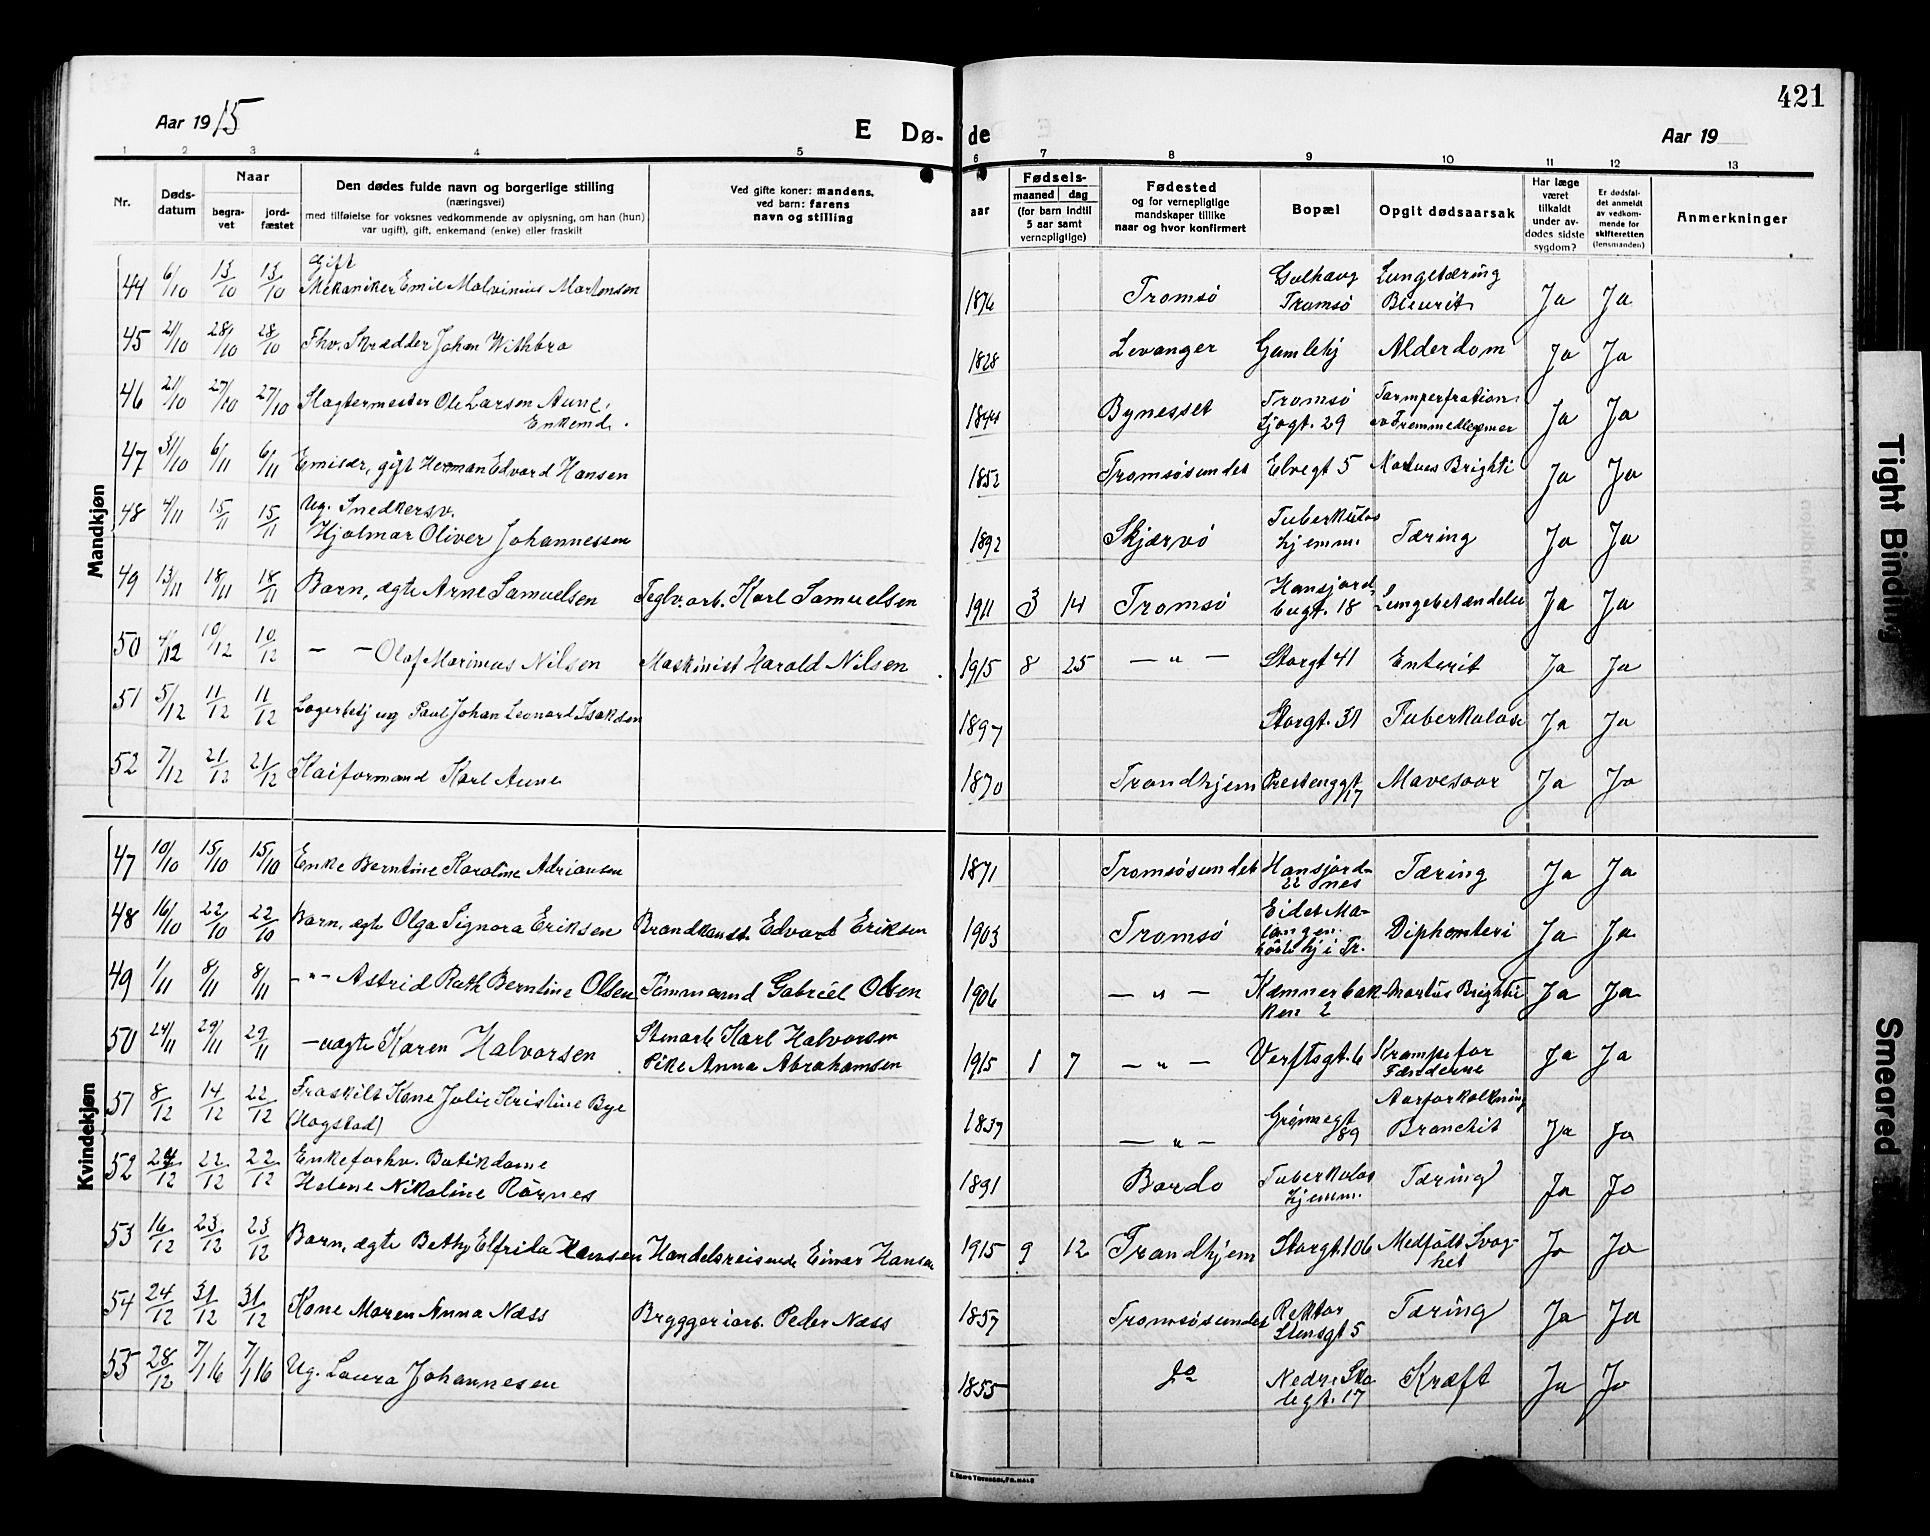 421
Aar 1915
E Dø-
de
Aar 19
1 2 3 4 5 6 7 8 9 10 11 12 13
Nr.
Døds-
datum
Naar
begra-
vet
jord-
fæstet
Den dødes fulde navn og borgerlige stilling
(næringsvei)
med tilføielse for voksnes vedkommende av oplysning, om han (hun)
var ugift), gift, enkemand (enke) eller fraskilt
Ved gifte koner: mandens,
ved barn: farens
navn og stilling
aar
Fødsels-
maaned dag
(for barn indtil
5 aar samt
vernepligtige)
Fødested
og for vernepligtige
mandskaper tillike
naar og hvor konfirmert
Bopæl
Opgit dødsaarsak
Har læge
været
tilkaldt
under av-
dødes sidste
sygdom?
Er dødsfal-
det anmeldt
av vedkom-
mende for
skifteretten
(lensmanden)
Anmerkninger
Mandkjøn
44 6/10 13/10 13/10 Gift Mekaniker Emil Malvinius Martensen 1876 Tromsø Tromsø Lungetæring Bleurit Ja Ja
45 21/10 28/10 28/10 Fhv. Skrædder Johan Withbro 1828 Levanger Gamlehj Alderdom Ja Ja
46 21/10 27/10 27/10 Slagtermester Ole Larsen Aune, Enkemd. 1844 Bynesset Tromsø Sjøgt. 29 Ja Ja
47 31/10 6/11 6/11 Emisær, gift Herman Edvard Hansen 1852 Tromsøsundet Elvegt 5 Morbus Brighti Ja Ja
48 4/11 15/11 15/11 Ug. Snedkersv. Hjalmar Oliver Johannessen 1892 Skjærvø Tuberkulos hjemm. Tæring Ja Ja
49 13/11 18/11 18/11 Barn, ægte Arne Samuelsen Teglv.arb. Karl Samuelsen 1911 3 14 Tromsø Hansjord. bugt. 18 Lungebetændelse Ja Ja
50 4/12 10/12 10/12 — — Olaf Marinus Nilsen Maskinist Harald Nilsen 1915 8 25 — " — Storgt 41 Enterit Ja Ja
51 5/12 11/12 11/12 Lagerbetj ug Paul Johan Leonard Isaksen 1897 Storgt. 31 Tuberkulose Ja Ja
52 7/12 21/12 21/12 Kaiformand Karl Aune 1870 Trondhjem Prestenggt 17 Mavesaar Ja Ja
Kvindekjøn
47 10/10 15/10 15/10 Enke Berntine Karoline Adriansen 1871 Tromsøsundet Hansjord- nes 22 Tæring Ja Ja
48 16/10 22/10 22/10 Barn, ægte Olga Signora Eriksen Brandkonst. Edvard Eriksen 1903 Tromsø Eidet Ma- langen. hj i Tr. Diphenteri Ja Ja
49 1/11 8/11 8/11 — " — Astrid Ruth Berntine Olsen Tømmermd Gabriel Olsen 1906 — " — Kæmnerbak- ken 2 Morbus Brighti Ja Ja
50 24/11 29/11 29/11 — uægte Karen Halvorsen Stenarb Karl Halvorsen Pike Anna Abrahamsen 1915 1 7 — " — Verftsgt. 6 Krampe for Tænderne Ja Ja
51 8/12 14/12 22/12 Fraskilt Kone Julie Kristine Bye (Hogstad) 1837 — " — Grønnegt 89 Aarforkalkning Bronchit Ja Ja
52 22/12 22/12 Enke forhv. Butikdame Helene Nikoline Rørnes 1891 Bardo Tuberkulos hjemm. Tæring Ja Ja
53 16/12 23/12 23/12 Barn, ægte Bethy Elfrida Hansen Handelsreisende Einar Hansen 1915 9 12 Trondhjem Storgt. 106 Medfødt Svag- het Ja Ja
54 24/12 31/12 31/12 Kone Maren Anna Næss Bryggeriarb. Peder Næss 1857 Tromsøsundet Rektor Stensgt 5 Tæring Ja Ja
55 28/12 7/1 16 7/1 16 Ug. Laura Johannesen 1855 do Nedre Ska legt. 17 Kræft Ja Ja
Tight Binding
Smeared